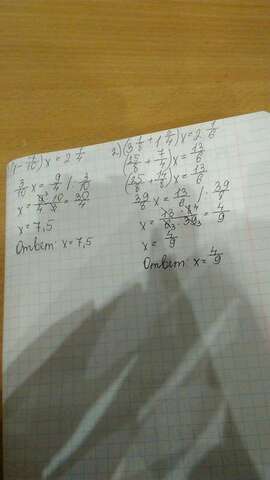 1 - 7/10) x = 2 1/4
3/10 x = 9/4 /: 3/10
x = 9/4 · 10/3 = 30/4
x = 7,5
Ответ: x = 7,5
2) (3 1/8 + 1 3/4) x = 2 1/6
(25/8 + 7/4) x = 13/6
(25/8 + 14/8) x = 13/6
39/8 x = 13/6 /: 39/8
x = 13 · 8 4 / 6 3 · 39 3 = 4/9
x = 4/9
Ответ: x = 4/9